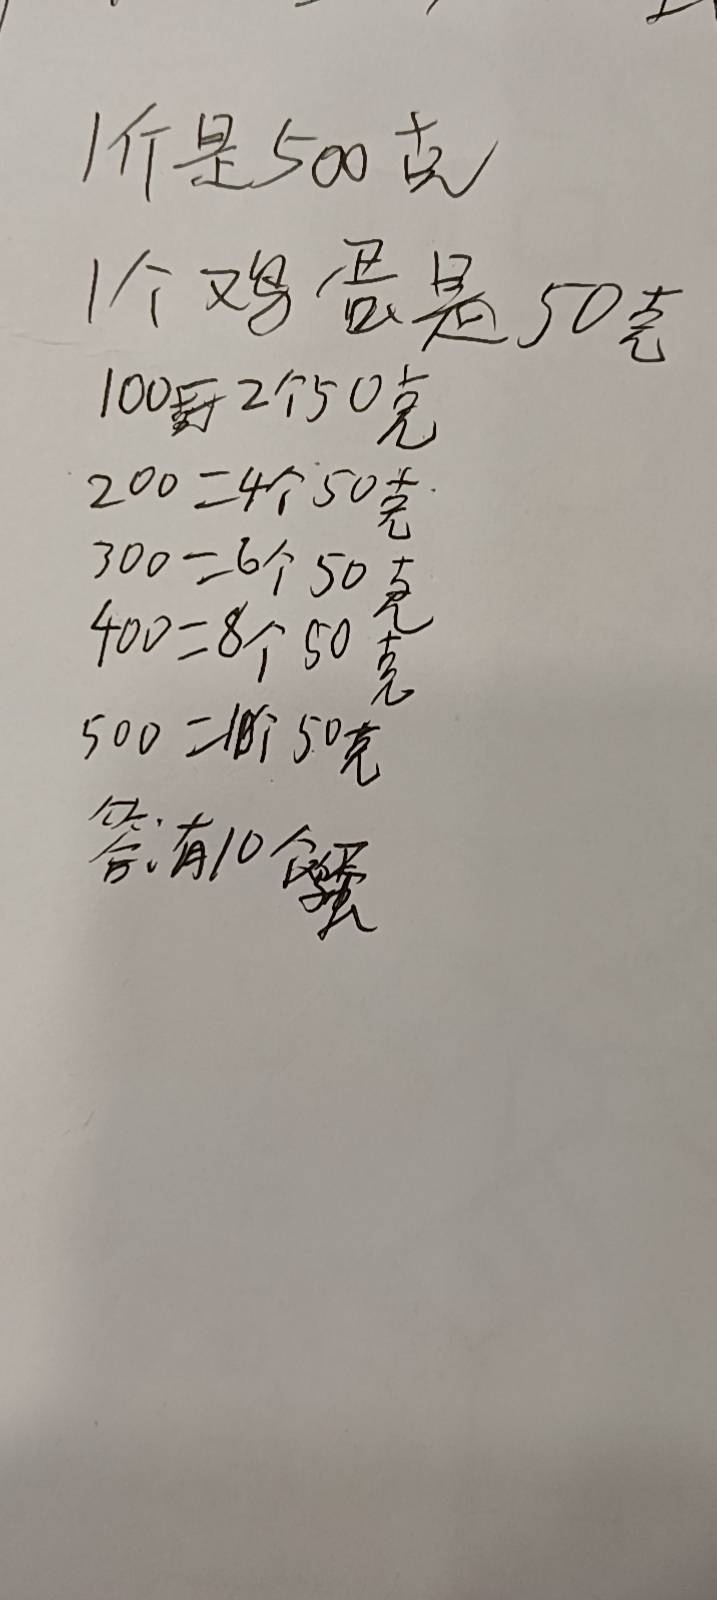 1斤是500克
1个鸡蛋是50克
100=2个50克
200=4个50克
300=6个50克
400=8个50克
500=10个50克
答:有10个鸡蛋